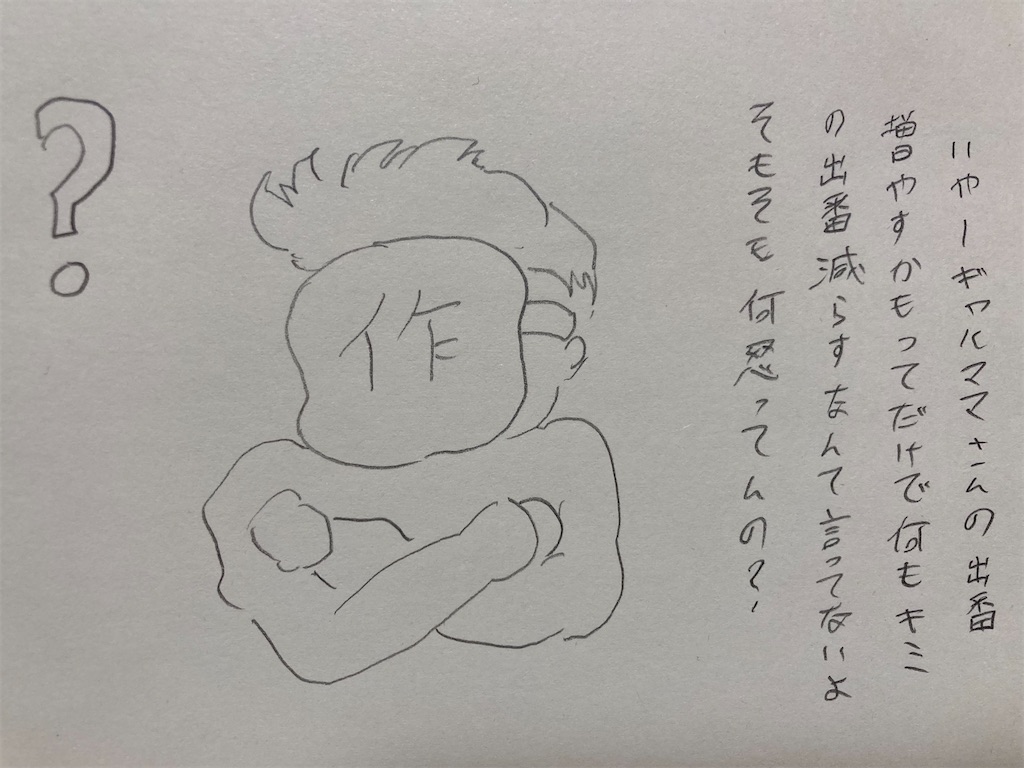 いやーギャルママさんの出番
増やすかもってだけで何もキミ
の出番減らすなんて言ってないよ
そもそも何怒ってんの?
作
?